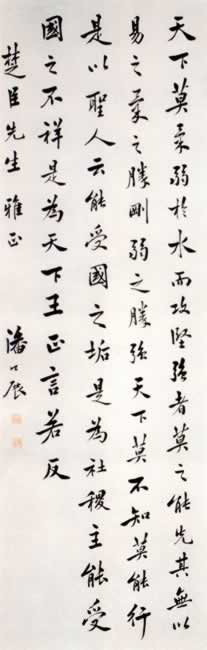 天下莫柔弱於水而攻堅强者莫之能先其無以
易之柔之勝剛弱之勝强天下莫不知莫能行
是以聖人云能受國之垢是為社稷主能受
國之不祥是為天下王正言若反
楚臣先生雅正
潘